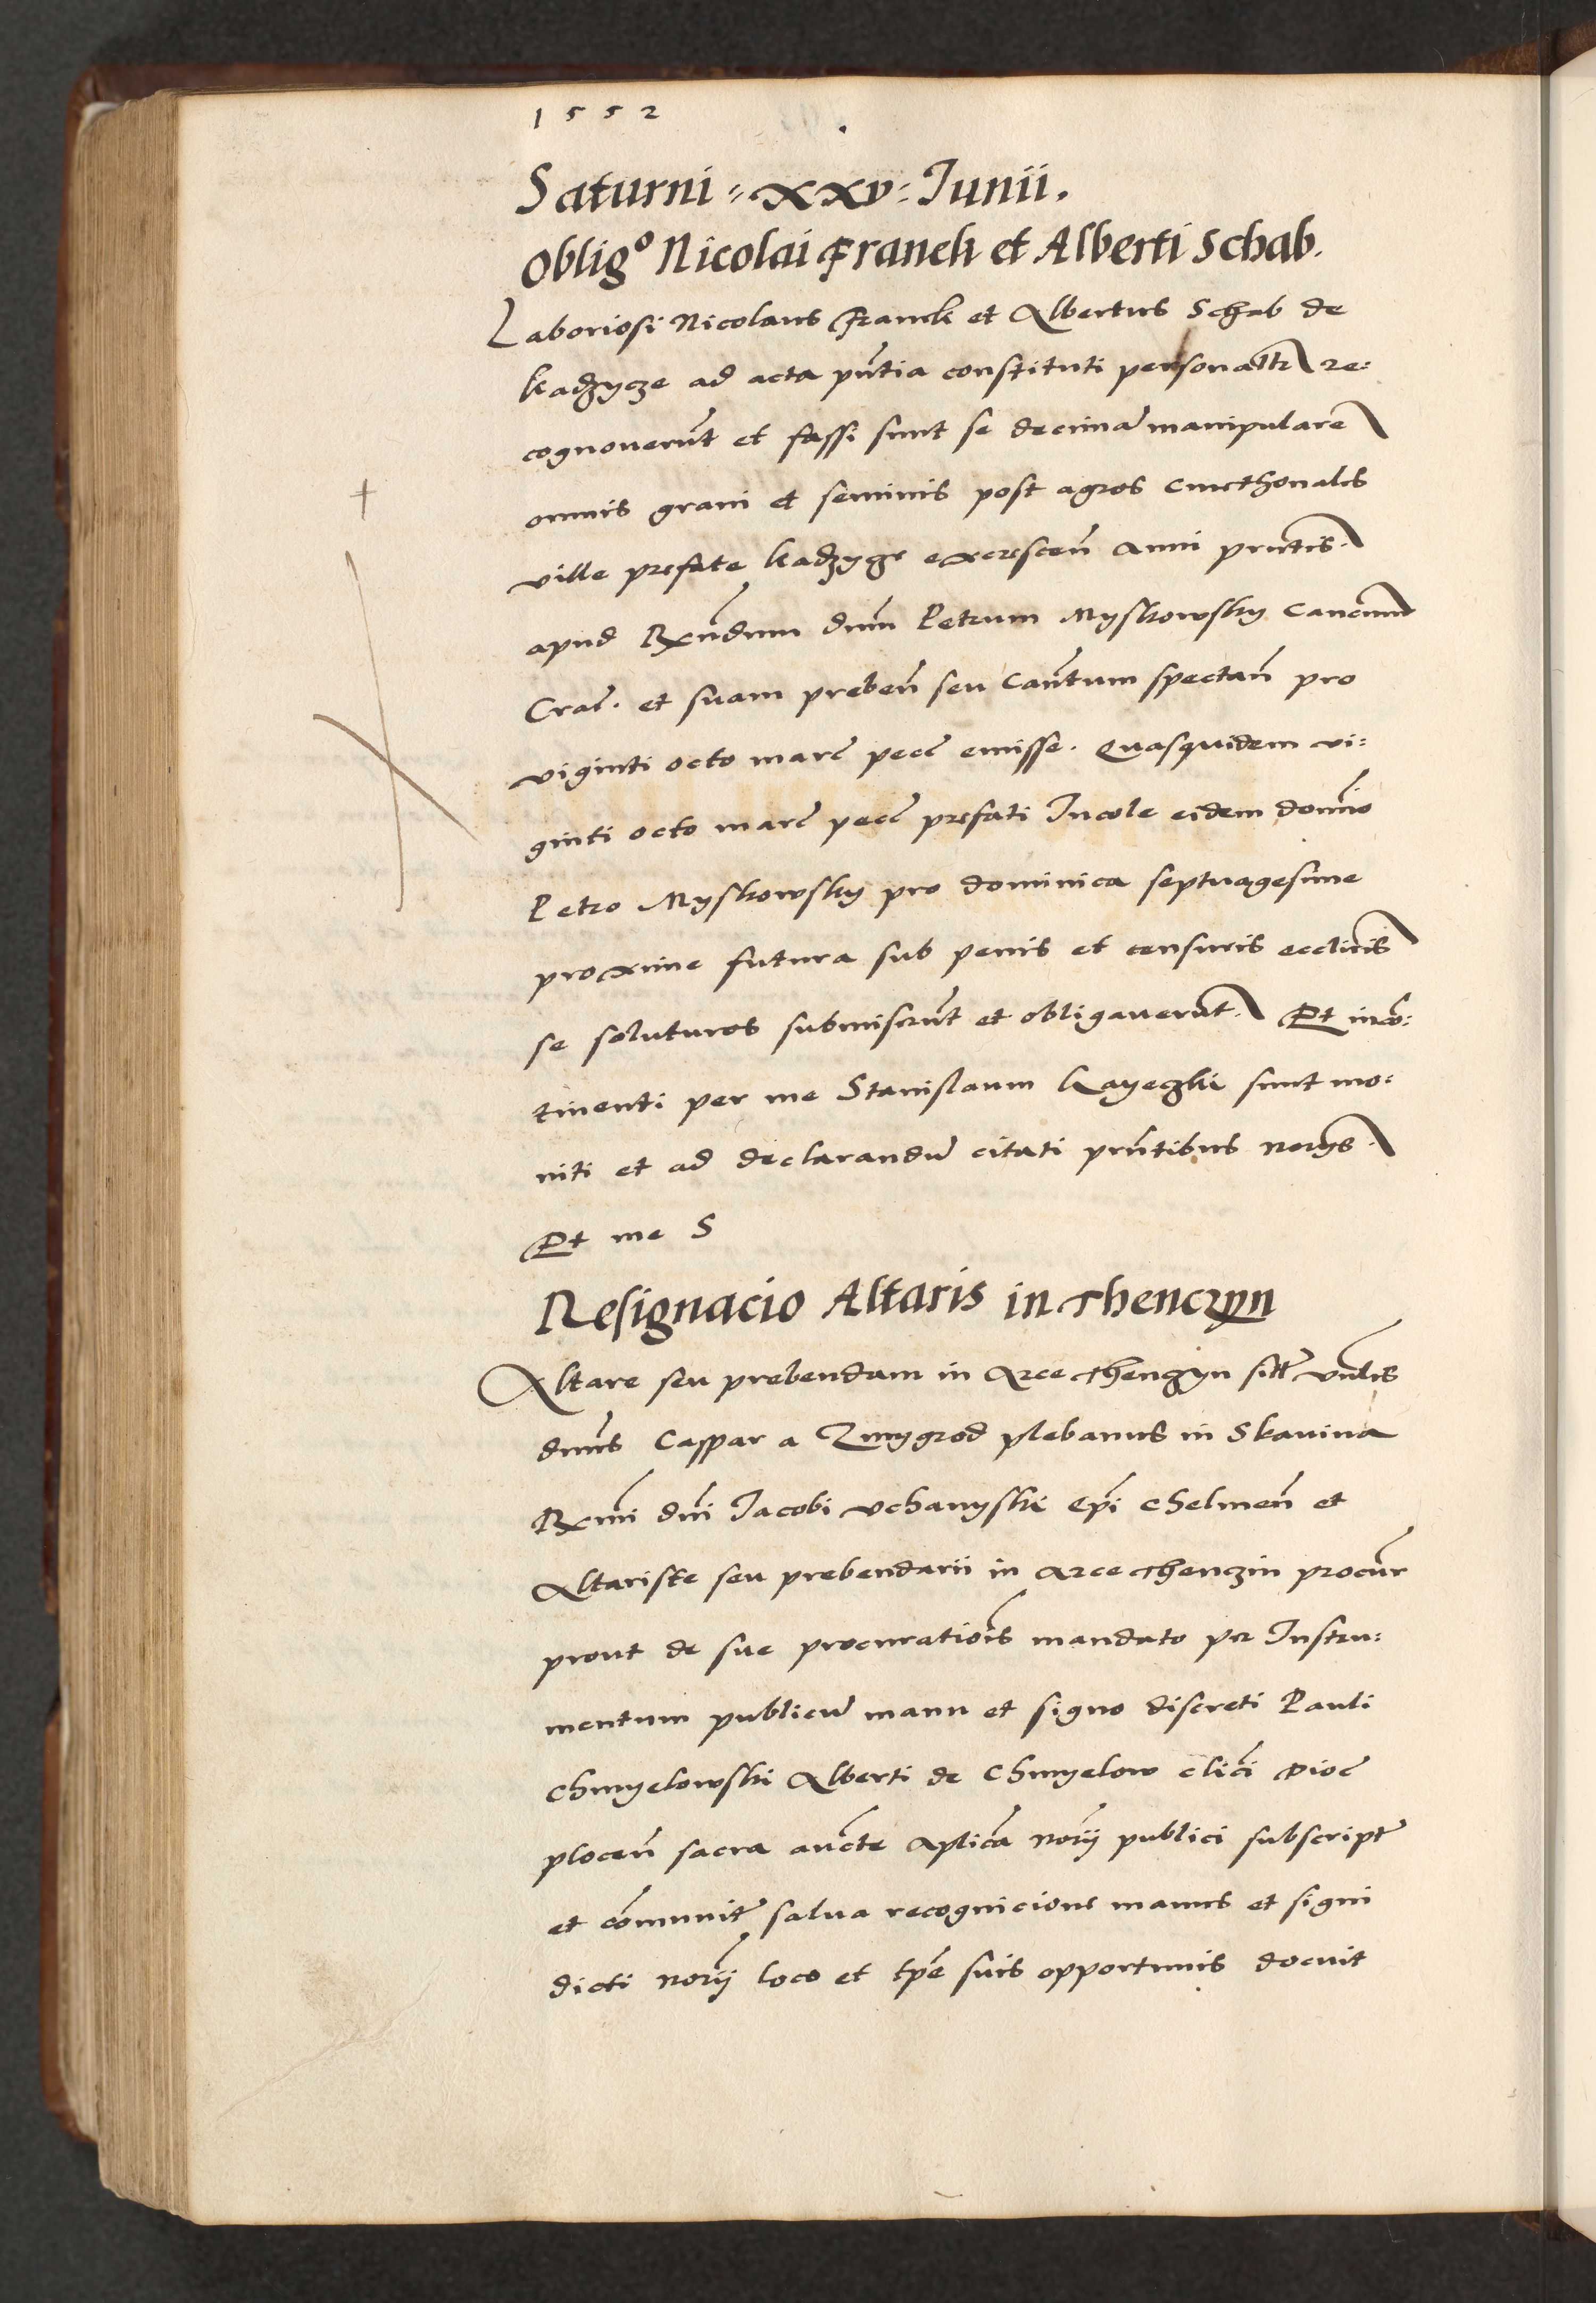 1552
Saturni = xxv = Iunii.
Obligo Nicolai Franek et Alberti Schab.
Laboriosi Nicolaus Franek et Albertus Schab de
Kadzycze ad acta pñtia constituti personaltr re:
cognouerũt et fassi sunt se decimã manipularẽ
omnis grani et seminis post agros cmethonales
ville prefate Kadzycze excrescen̄ anni pñtis.
apud Rx̃ndum dnm̃ Petrum Myskowsky Cancum
Crac̃. et suam preben̄ seu Can̄tum spectan̄ pro
viginti octo marc̃ pecc̃ emisse. Quasquidem vi:
ginti octo marc̃ pecc̃ prefati Incole eidem domĩo
Petro Myskowsky pro dominica septuagesime
proxime futura sub penis et censuris eccliĩcis
se soluturos submiserũt et obligauerũt. Et incõ:
tinenti per me Stanislaum Kayeczki sunt mo:
niti et ad declarandũ citati pñtibus norys.
Et me S
Resignacio Altaris in Thenczyn
Altare seu prebendam in Arce Thenczyn sitt̃ vñlis
dnũs Caspar a Zmygrod plebanus in Skauina
Rxm̃i dnĩ Iacobi Vchanyski Ep̃i Chelmen̄ et
Altariste seu prebendarii in Arce Thenczin procur̃
prout de sue procuratiõis mandato per Instru:
mentum publicũ manu et signo discreti Pauli
Chmyelowski Alberti de Chmyelow clic̃i Dioc̃
plocen̄ sacra auc̃te aplic̃a norĩj publici subscript̃
et cõmunit̃ salua recognicione manus et signi
dicti norĩj loco et tp̃e suis opportunis docuit